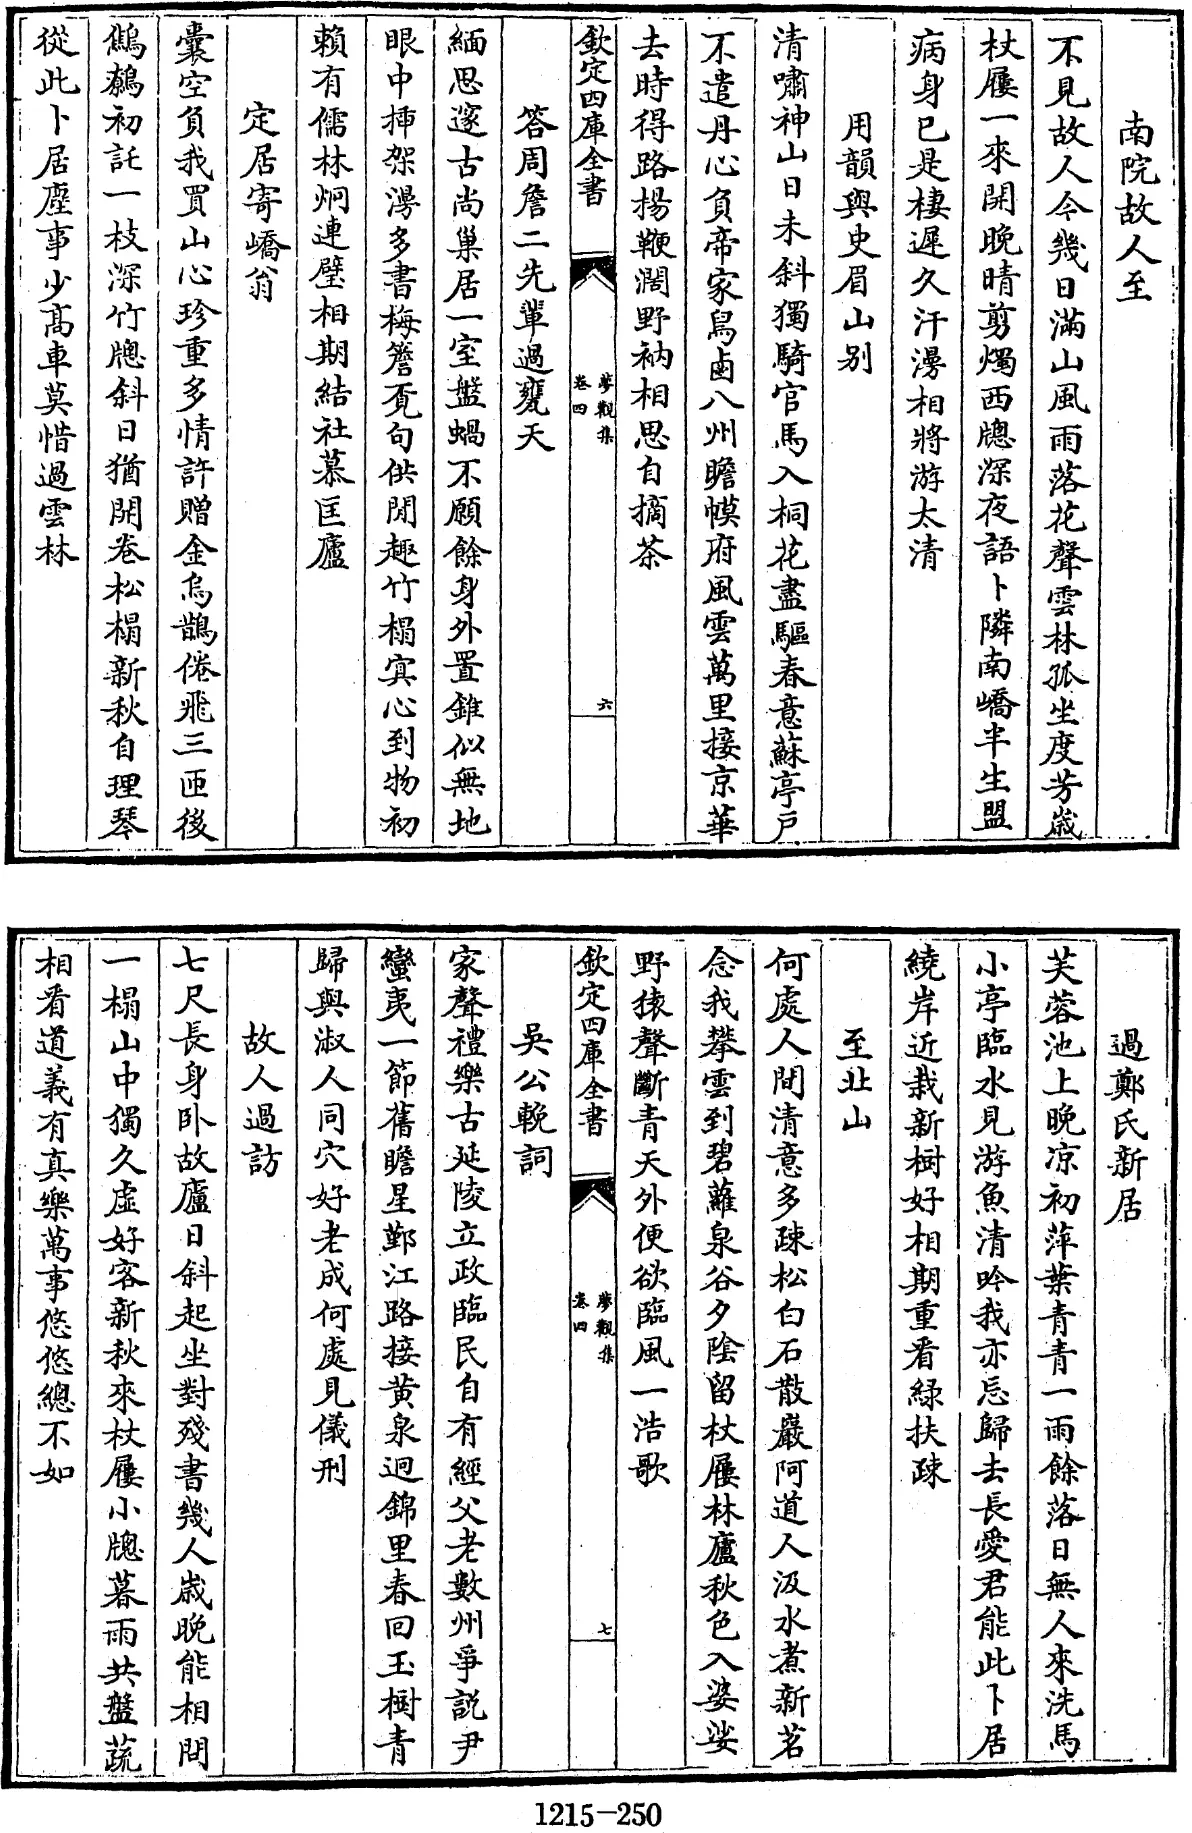 南院故人至
不見故人今幾日滿山風雨落花聲雲林孤坐度芳歳
杖屨一來開晚晴剪燭西牕深夜語卜隣南嶠半生盟
病身已是棲遲久汗漫相將游太清
用韻與史眉山别
清嘯神山日未斜獨騎官馬入桐花盡驅春意蘇亭戸
不遣丹心負帝家舄鹵八州瞻幙府風雲萬里接京華
去時得路揚鞭濶野衲相思自摘茶
欽定四庫全書
夢觀集
卷四
六
答周詹二先軰過甕天
緬思邃古尚巢居一室盤蝸不願餘身外置錐似無地
眼中挿架漫多書梅簷覓句供閒趣竹榻寘心到物初
賴有儒林烱連璧相期結社慕匡廬
定居寄嶠翁
囊空負我買山心珍重多情許贈金烏鵲倦飛三匝後
鷦鷯初託一枝深竹牕斜日猶開卷松榻新秋自理琴
從此卜居塵事少髙車莫惜過雲林
過鄭氏新居
芙蓉池上晚凉初萍葉青青一雨餘落日無人來洗馬
小亭臨水見游魚清吟我亦忘歸去長愛君能此卜居
繞岸近栽新樹好相期重看緑扶疎
至北山
何處人間清意多疎松白石散巖阿道人汲水煮新茗
念我攀雲到碧蘿泉谷夕陰留杖屨林廬秋色入婆娑
野猿聲斷青天外便欲臨風一浩歌
欽定四庫全書
夢觀集
卷四
七
吳公輓詞
家聲禮樂古延陵立政臨民自有經父老數州爭説尹
蠻夷一節舊瞻星鄞江路接黄泉迥錦里春回玉樹青
歸與淑人同穴好老成何處見儀刑
故人過訪
七尺長身卧故廬日斜起坐對殘書幾人歳晚能相問
一榻山中獨久虛好客新秋來杖屨小牕暮雨共盤蔬
相看道義有真樂萬事悠悠總不如
1215-250